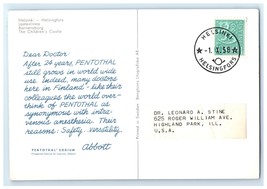 Helsinki — Helsingfors
Lastenlinna
Barnens borg
The Children's Castle
Dear Doctor:
After 24 years, PENTOTHAL
still grows in world wide
use. Indeed, many doctors
here in Finland like their
colleagues the world over-
think of PENTOTHAL as
synonymous with intra-
venous anesthesia. Their
reasons: Safety. Versatility.
PENTOTHAL® SODIUM
Abbott
Printed in Sweden
HELSINKI
-1.X.58
HELSINGFORS
DR. LEONARD A. STINE
625 ROGER WILLIAM AVE.
HIGHLAND PARK, ILL.
U.S.A.